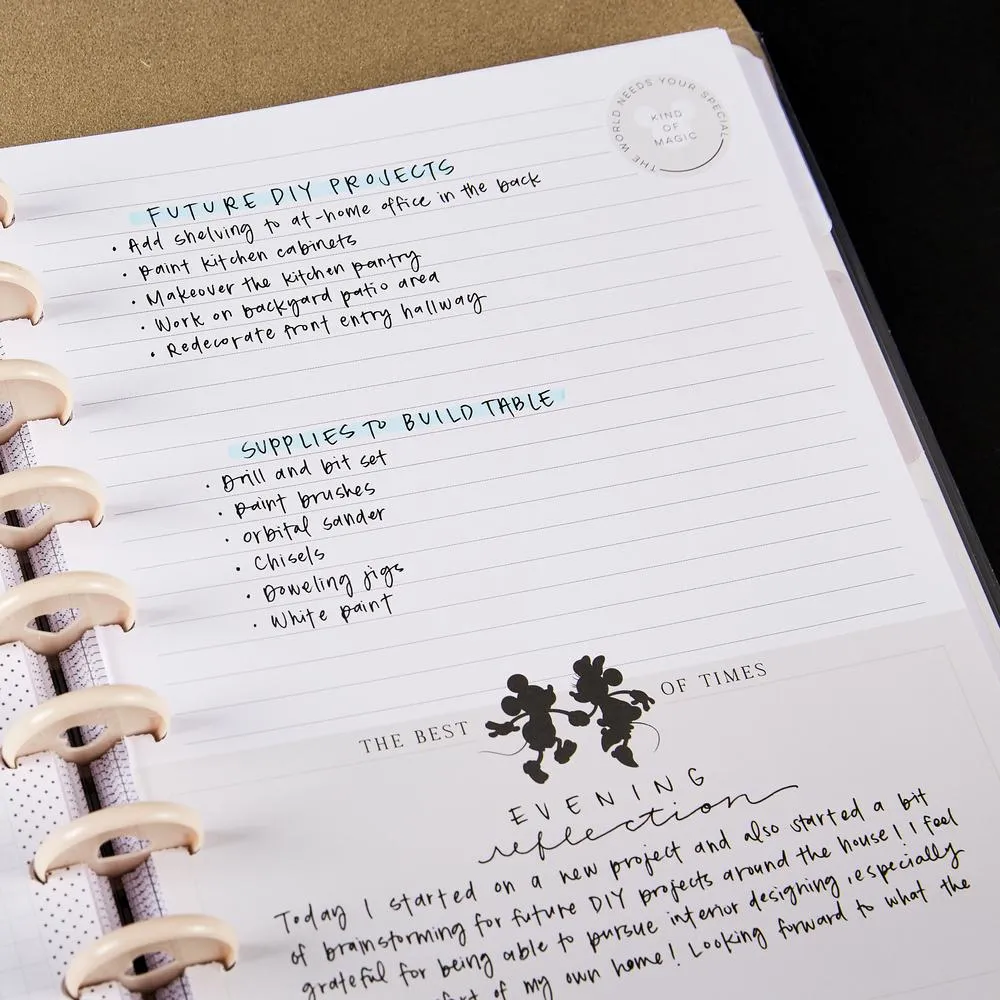 THE WORLD NEEDS YOUR SPECIAL
KIND
OF
MAGIC
FUTURE DIY PROJECTS
• Add shelving to at-home office in the back
• paint kitchen cabinets
• Makeover the kitchen pantry
• Work on backyard patio area
• Redecorate front entry hallway
SUPPLIES TO BUILD TABLE
• Drill and bit set
• paint brushes
• orbital sander
• Chisels
• Doweling jigs
• White paint
THE BEST OF TIMES
EVENING
reflection
Today I started on a new project and also started a bit
of brainstorming for future DIY projects around the house! I feel
grateful for being able to pursue interior designing, especially
of my own home! Looking forward to what the